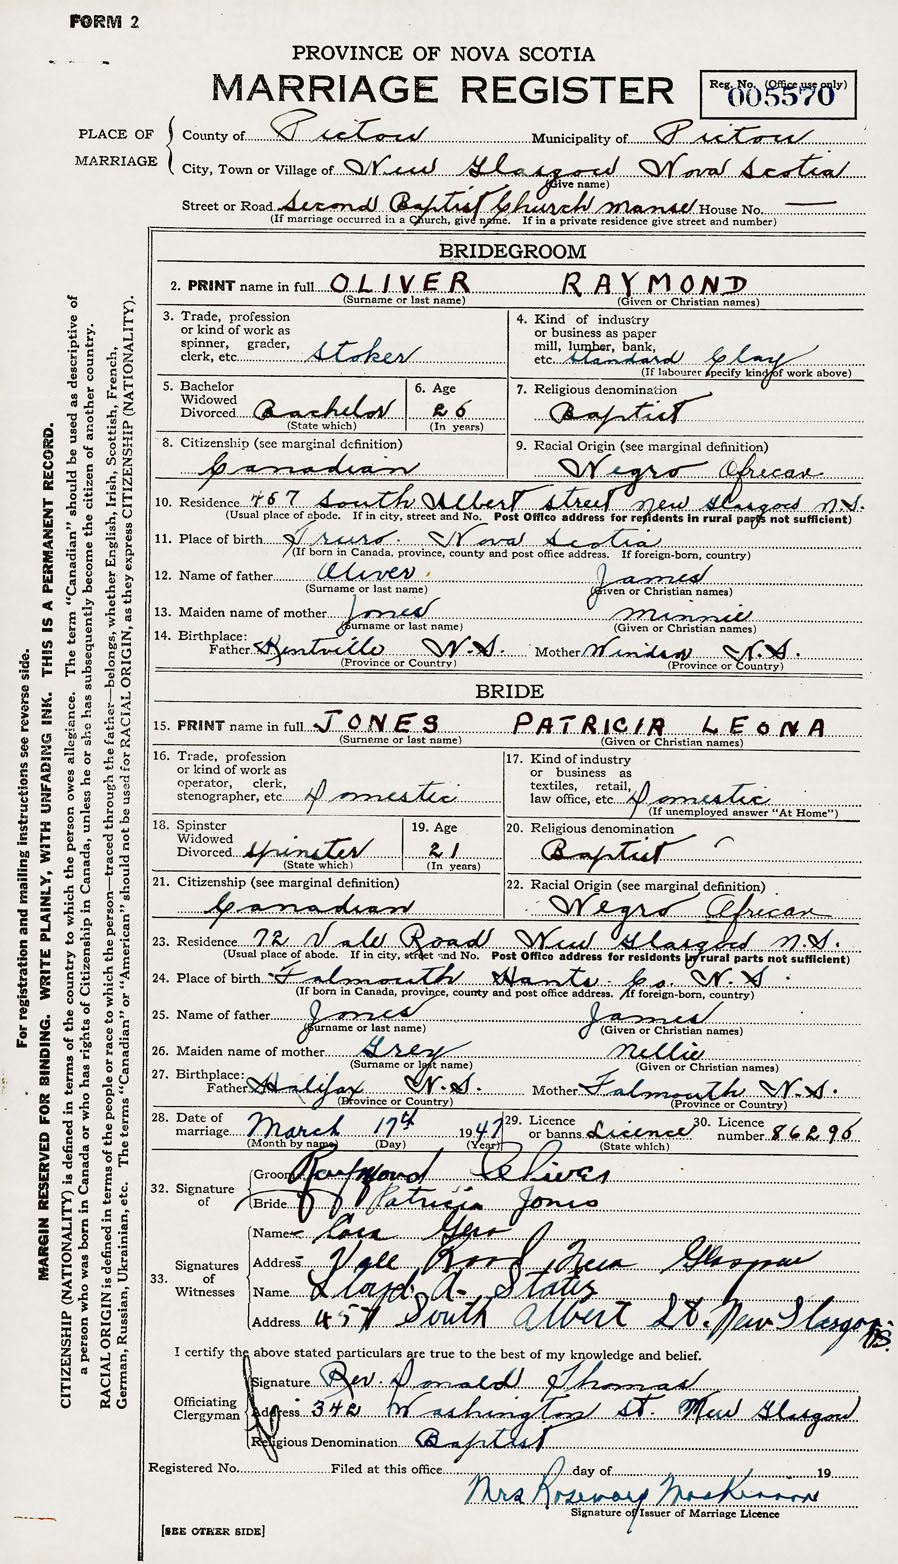 FORM 2
PROVINCE OF NOVA SCOTIA
MARRIAGE REGISTER
Reg. No. (Office use only)
005570
PLACE OF MARRIAGE
County of Pictou Municipality of Pictou
City, Town or Village of New Glasgow Nova Scotia
(Give name)
Street or Road Second Baptist Church Manse House No. —
(If marriage occurred in a Church, give name. If in a private residence give street and number)
BRIDEGROOM
2. PRINT name in full OLIVER RAYMOND
(Surname or last name) (Given or Christian names)
3. Trade, profession
or kind of work as
spinner, grader,
clerk, etc. Stoker
4. Kind of industry
or business as paper
mill, lumber, bank,
etc. Standard Clay
(If labourer specify kind of work above)
5. Bachelor
Widowed
Divorced Bachelor
(State which)
6. Age
26
(In years)
7. Religious denomination
Baptist
8. Citizenship (see marginal definition)
Canadian
9. Racial Origin (see marginal definition)
Negro African
10. Residence 457 South Albert Street New Glasgow N.S.
(Usual place of abode. If in city, street and No. Post Office address for residents in rural parts not sufficient)
11. Place of birth Truro. Nova Scotia
(If born in Canada, province, county and post office address. If foreign-born, country)
12. Name of father Oliver James
(Surname or last name) (Given or Christian names)
13. Maiden name of mother Jones Minnie
(Surname or last name) (Given or Christian names)
14. Birthplace:
Father Kentville N.S. Mother Windsor N.S.
(Province or Country) (Province or Country)
BRIDE
15. PRINT name in full JONES PATRICIA LEONA
(Surname or last name) (Given or Christian names)
16. Trade, profession
or kind of work as
operator, clerk,
stenographer, etc. Domestic
17. Kind of industry
or business as
textiles, retail,
law office, etc. Domestic
(If unemployed answer "At Home")
18. Spinster
Widowed
Divorced Spinster
(State which)
19. Age
21
(In years)
20. Religious denomination
Baptist
21. Citizenship (see marginal definition)
Canadian
22. Racial Origin (see marginal definition)
Negro African
23. Residence 72 Vale Road New Glasgow N.S.
(Usual place of abode. If in city, street and No. Post Office address for residents in rural parts not sufficient)
24. Place of birth Falmouth Hants Co. N.S.
(If born in Canada, province, county and post office address. If foreign-born, country)
25. Name of father Jones James
(Surname or last name) (Given or Christian names)
26. Maiden name of mother Grey Nellie
(Surname or last name) (Given or Christian names)
27. Birthplace:
Father Halifax N.S. Mother Falmouth N.S.
(Province or Country) (Province or Country)
28. Date of
marriage March 17th 1947
(Month by name) (Day) (Year)
29. Licence
or banns Licence
(State which)
30. Licence
number 86296
32. Signature of
Groom Raymond Oliver
Bride Patricia Jones
33. Signatures of Witnesses
Name
Address Vale Road New Glasgow
Name Lloyd A. States
Address 457 South Albert St. New Glasgow N.S.
I certify the above stated particulars are true to the best of my knowledge and belief.
Officiating Clergyman
Signature Rev. Donald Thomas
Address 342 Washington St. New Glasgow
Religious Denomination Baptist
Registered No. Filed at this office day of 19
Mrs Rosemary MacKinnon
Signature of Issuer of Marriage Licence
[SEE OTHER SIDE]
For registration and mailing instructions see reverse side.
MARGIN RESERVED FOR BINDING. WRITE PLAINLY, WITH UNFADING INK. THIS IS A PERMANENT RECORD.
CITIZENSHIP (NATIONALITY) is defined in terms of the country to which the person owes allegiance. The term "Canadian" should be used as descriptive of
a person who was born in Canada or who has rights of Citizenship in Canada, unless he or she has subsequently become the citizen of another country.
RACIAL ORIGIN is defined in terms of the people or race to which the person—traced through the father—belongs, whether English, Irish, Scottish, French,
German, Russian, Ukrainian, etc. The terms "Canadian" or "American" should not be used for RACIAL ORIGIN, as they express CITIZENSHIP (NATIONALITY).